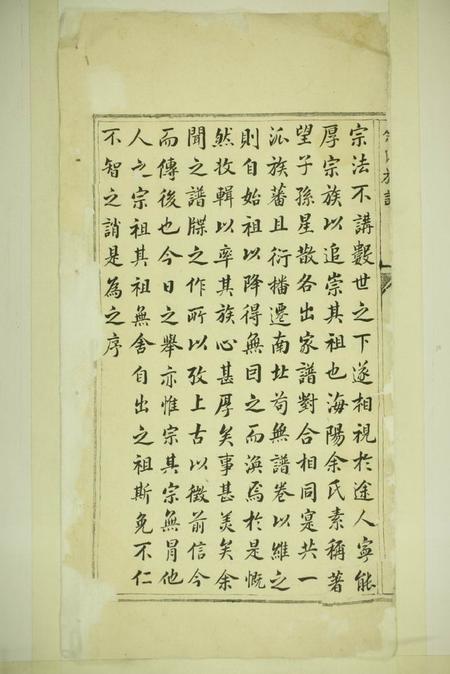 宗法不講數世之下遂相視於途人寧能
厚宗族以追崇其祖也海陽余氏素稱著
望子孫星散各出家譜對合相同寔共一
派族蕃且衍播遷南北苟無譜卷以維之
則自始祖以降得無因之而渙焉於是慨
然收輯以率其族心甚厚矣事甚美矣余
聞之譜牒之作所以攷上古以徵前信今
而傳後也今日之舉亦惟宗其宗無冐他
人之宗祖其祖無舍自出之祖斯免不仁
不智之誚是為之序